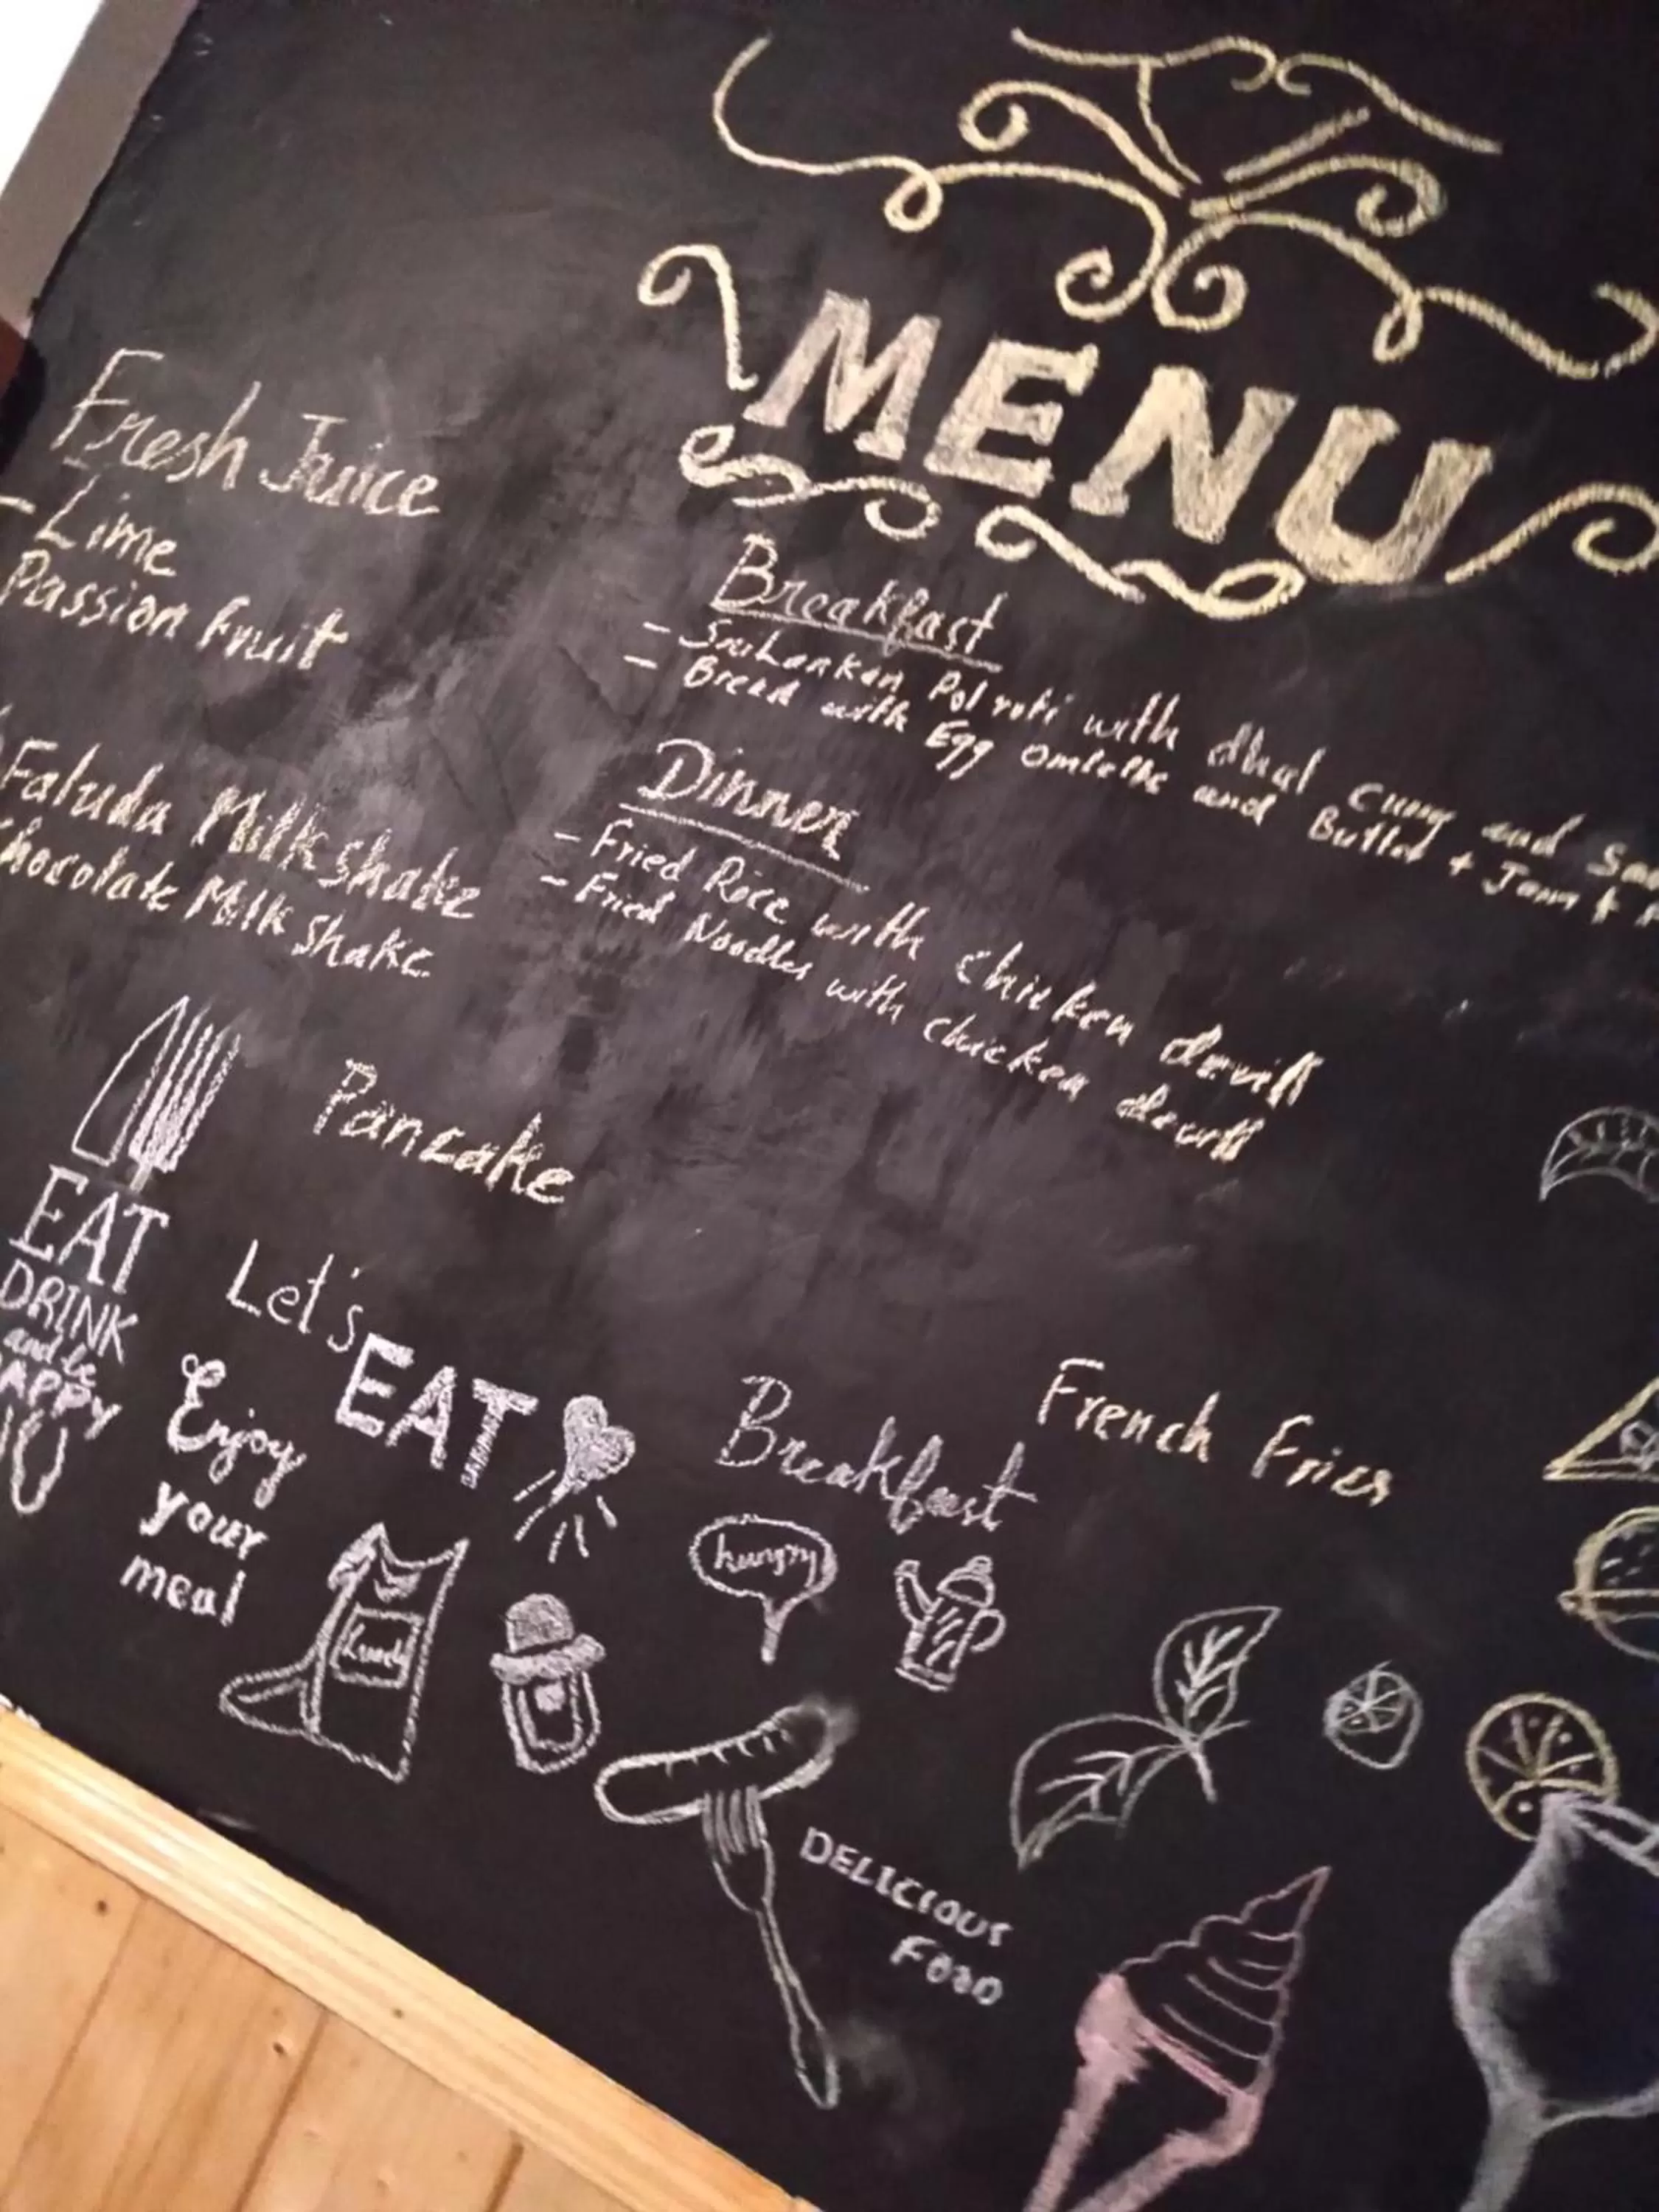 MENU
Fresh Juice
- Lime
Passion Fruit
Faluda Milkshake
Chocolate Milk Shake
Breakfast
- SriLankan Pol roti with dhal curry and
- Bread with Egg Omlette and Butter + Jam +
Dinner
- Fried Rice with chicken devill
- Fried Noodles with chicken devill
Pancake
EAT
DRINK
and be
HAPPY
Let's
EAT
Enjoy
your
meal
Lunch
Breakfast
hungry
French Fries
DELICIOUS
FOOD